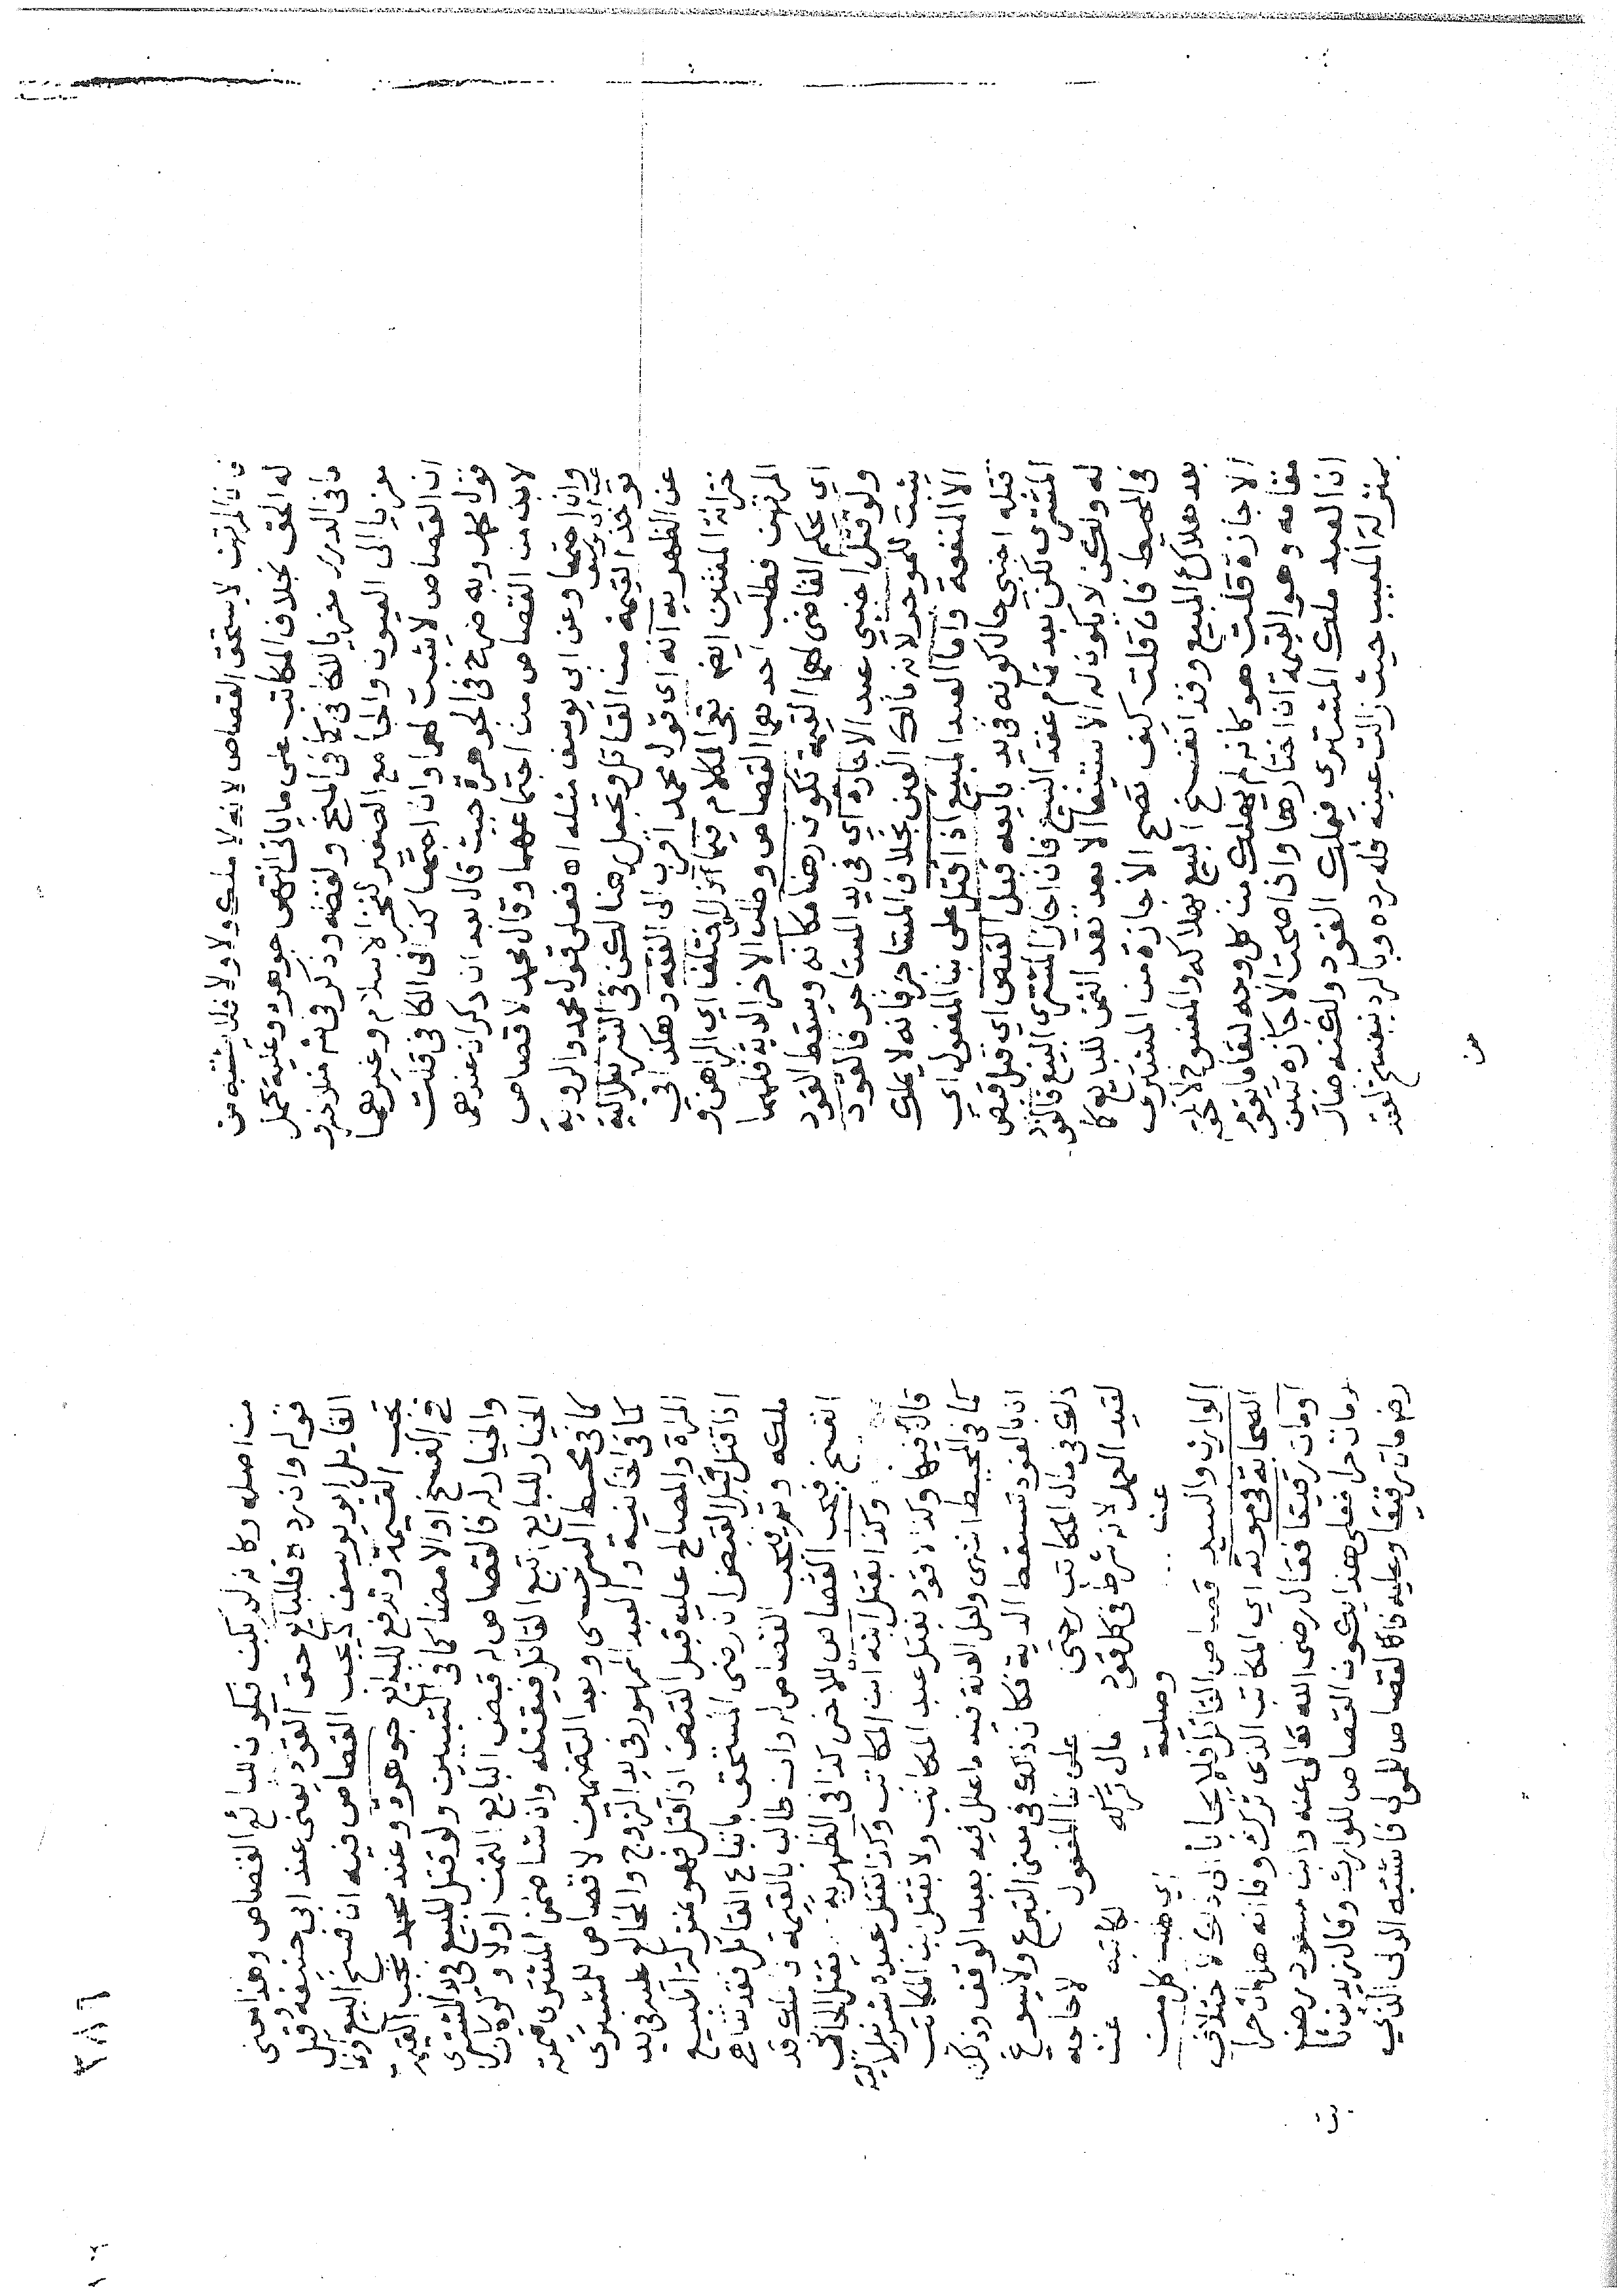 فان المرتهن لا يستحق القصاص لانه لا ملك ولا ولاء فلم يشتبه من
له الحق بخلاف المكاتب على ما ياتى انتهى جوهره وعليه يحمل
ما فى الدرر معزيا للكافى كما فى المنح ولفظه وذكر فى شرح ملا خسرو
معزيا الى العيون والجامع الصغير لفخر الاسلام وغيرهما
ان القصاص لا يثبت لهما وان اجتمعا كذا فى الكافى قلت
قول محمد وبه صرح فى الجوهرة حيث قال بعد ان ذكر ان عندهما
لا بد من القصاص من اجتماعهما وقال محمد لا قصاص
وان اجتمعا وعن ابى يوسف مثله اه فعلى قول محمد والرواية
عن ابى يوسف
توخذ القيمة من القاتل وتجعل رهنا لكن فى الشرنبلالية
عن الظهيرية انه اى قول محمد اقرب الى الفقه وهكذا فى
خزانة المفتين ايضا بقى الكلام فيما اذا اختلفا اى الراهن و
المرتهن فطلب احدهما القصاص وطلب الاخر الدية فلهما
اى يحكم القاضى لهما القيمة تكون رهنا مكانه ويسقط القود
ولو قتل اجنبي عبد الاجارة اي فى يد المستاجر فالقود
يثبت للموجر لانه مالك العين بخلاف المستاجر فانه لا يملك
الا المنفعة واما العبد المبيع اذا قتل على بنا المفعول اي
قتله اجنبي حال كونه فى يد بايعه قبل القبض اي قبل قبض
المشترى لكن بعد تمام عقد البيع فان اجاز المشتري البيع فالقود
له ولكن لا يكون له الاستيفا الا بعد نقد الثمن للبايع كما
فى المحيط فان قلت كيف تصح الاجازة من المشترى
بعد هلاك المبيع وقد انفسخ البيع بهلاكه والمفسوخ لا تلحقه
الاجازة قلت هو كانه لم يهلك من كل وجه لبقاء ما يقوم
مقامه وهو القيمة ان اختارها وان اصحت الاجازة تبين
ان العبد ملك المشترى فيملك القود ولكنه صار
بمنزلة المعيب حيث زالت عينه فله رده وبالرد ينفسخ العقد
من
من اصله وكانه لم يكن فيكون للبائع القصاص وهذا معنى
قوله وان رده فللبايع حق القود يعنى عند ابى حنيفه وقيل
القايل ابو يوسف يجب القصاص فيه ان فسخ البيع وانما
تجب القيمة وتدفع للبايع جوهره وعند محمد تجب القيمة
فى الفسخ او الامضا كما فى التبيين ولو قتل المبيع فى يد المشترى
والخيار له فالقصاص له قبض البايع الثمن اولا ولو كان
الخيار للبايع اتبع القاتل فيقتله وان شا ضمن المشترى قيمته
كما فى محيط السرخسى وبعد التضمين لا قصاص للمشترى
كما فى الخانية والعبد المهور فى يد الزوج والمخالع عليه فى يد
المراة والمصالح عليه قبل القبض اذا قتل فهو بمنزلة المبيع
اذا قتل قبل القبض ان رضى المستحق باتباع القاتل فقد تناهى
ملكه وتم فيجب القصاص له وان طالب بالقيمة فملكه قد
انفسخ فيجب القصاص للاخر كذا فى الظهيرية
وكذا يقتل ابنه ابن المكاتب وكذا تقتل عبده شرنبلالية
قال فيها وكذا لا قود بقتل عبد المكاتب ولا بقتل ابن المكاتب
كما فى المحيط انتهى ولعل العلة فيه ما علل فيه بعبد الوقف وذكر
ان بالقود تسقط الدية فكان ذلك فى معنى التبرع ولا يسوغ
ذلك فى مال المكاتب حتى على بنا المفعول لا حاجه
لقيد العمد لانه شرط فى كل قود مال تركه لكاتبه عنه
عنه وصلته
الوارث والسيد قصاص القاتل فلا يجابا الى ذلك لاختلاف
الصحابة فى موته اي المكاتب الذى ترك وفا انه هل مات حرا
او مات رقيقا فقال رضى الله تعالى عنه وابن مسعود رضى
ومات حرا فعلى هذا يكون القصاص للوارث وقال زيد بن ثابت
رضى مات رقيقا وعليه فالقصاص للمولى فاشتبه الولى الذي